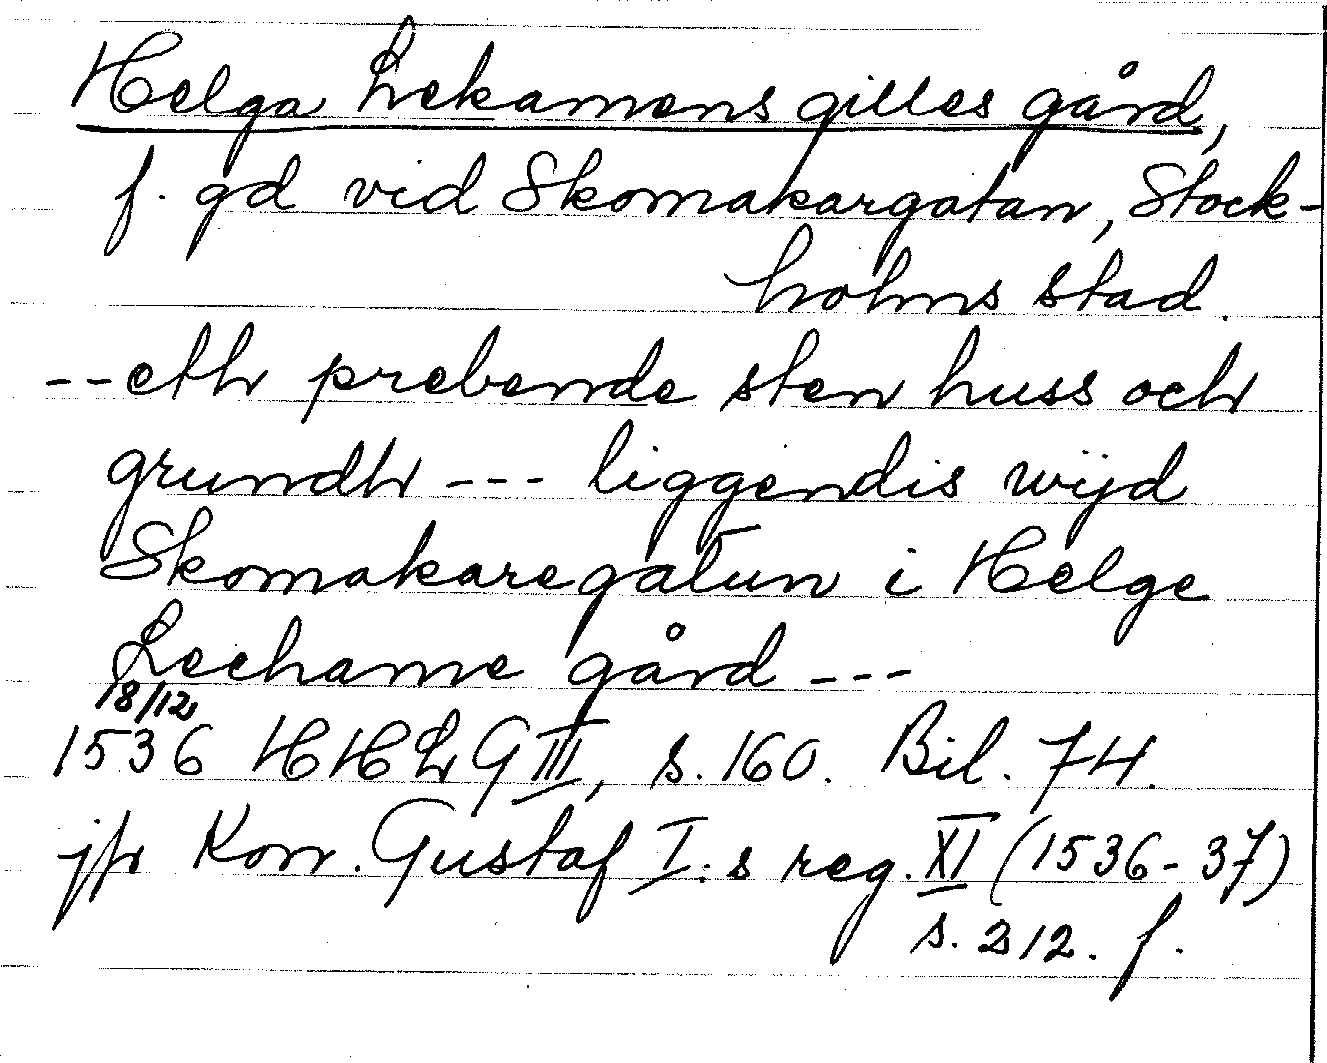 Helga Lekamens gilles gård,
f. gd vid Skomakargatan, Stock-
holms stad.
--eth prebende sten huss och
grundh --- liggendis wijd
Skomakaregatun i Helge
Lechame gård ---
18/12
1536 HHLG III, s. 160. Bil. 74.
jfr Kon. Gustaf I:s reg. XI (1536-37)
s. 212. f.